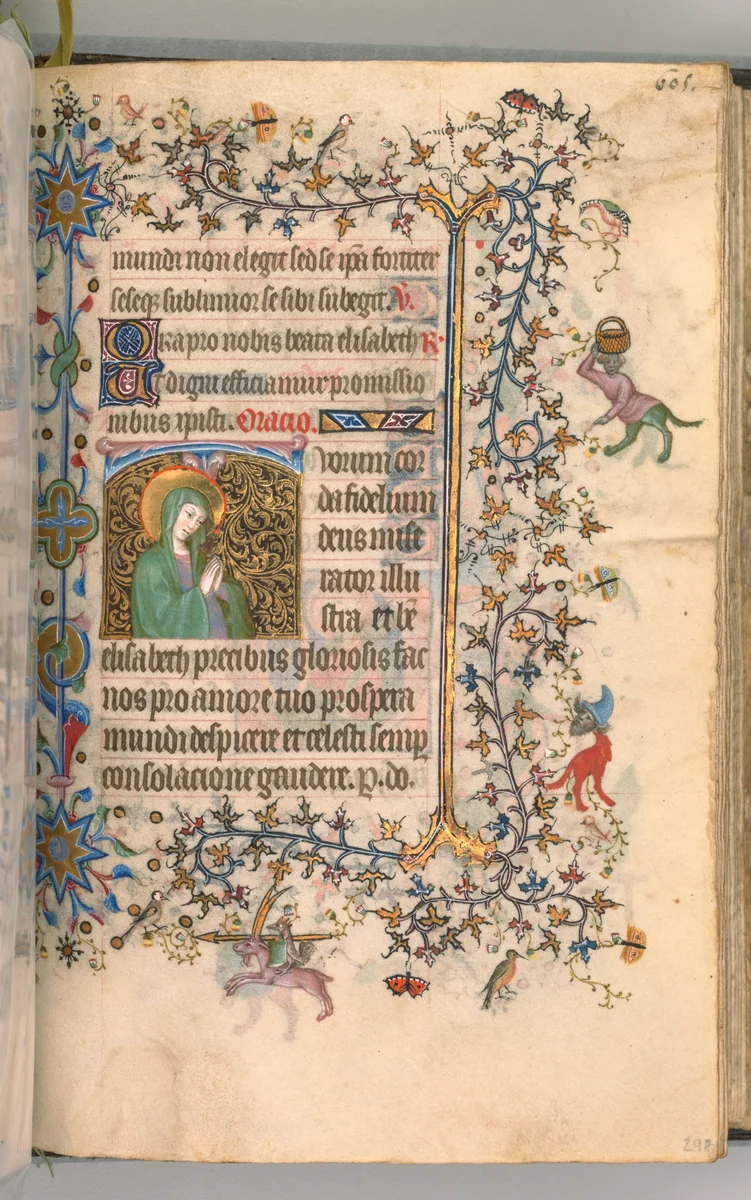 605.
mundi non elegit sed se ip̄a fortiter
seseq; sublimior se sibi subegit. V.
Ora pro nobis beata elisabeth R.
Ut digni efficiamur promissio
nibus xp̄isti. Oracio.
vorum cor
da fidelium
deus mise
rator illu
stra et bē
elisabeth precibus gloriosis fac
nos pro amore tuo prospera
mundi despicere et celesti semp
consolacione gaudere. P. do.